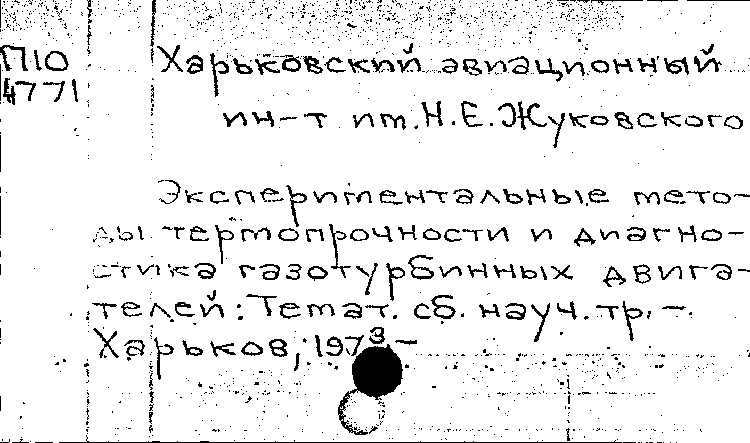 П10
4771
Харьковский авиационный
ин-т им. Н.Е. Жуковского
Экспериментальные мето-
ды термопрочности и диагно-
стика газотурбинных двига-
телей: Темат. сб. науч. тр. –
Харьков, 1973. –